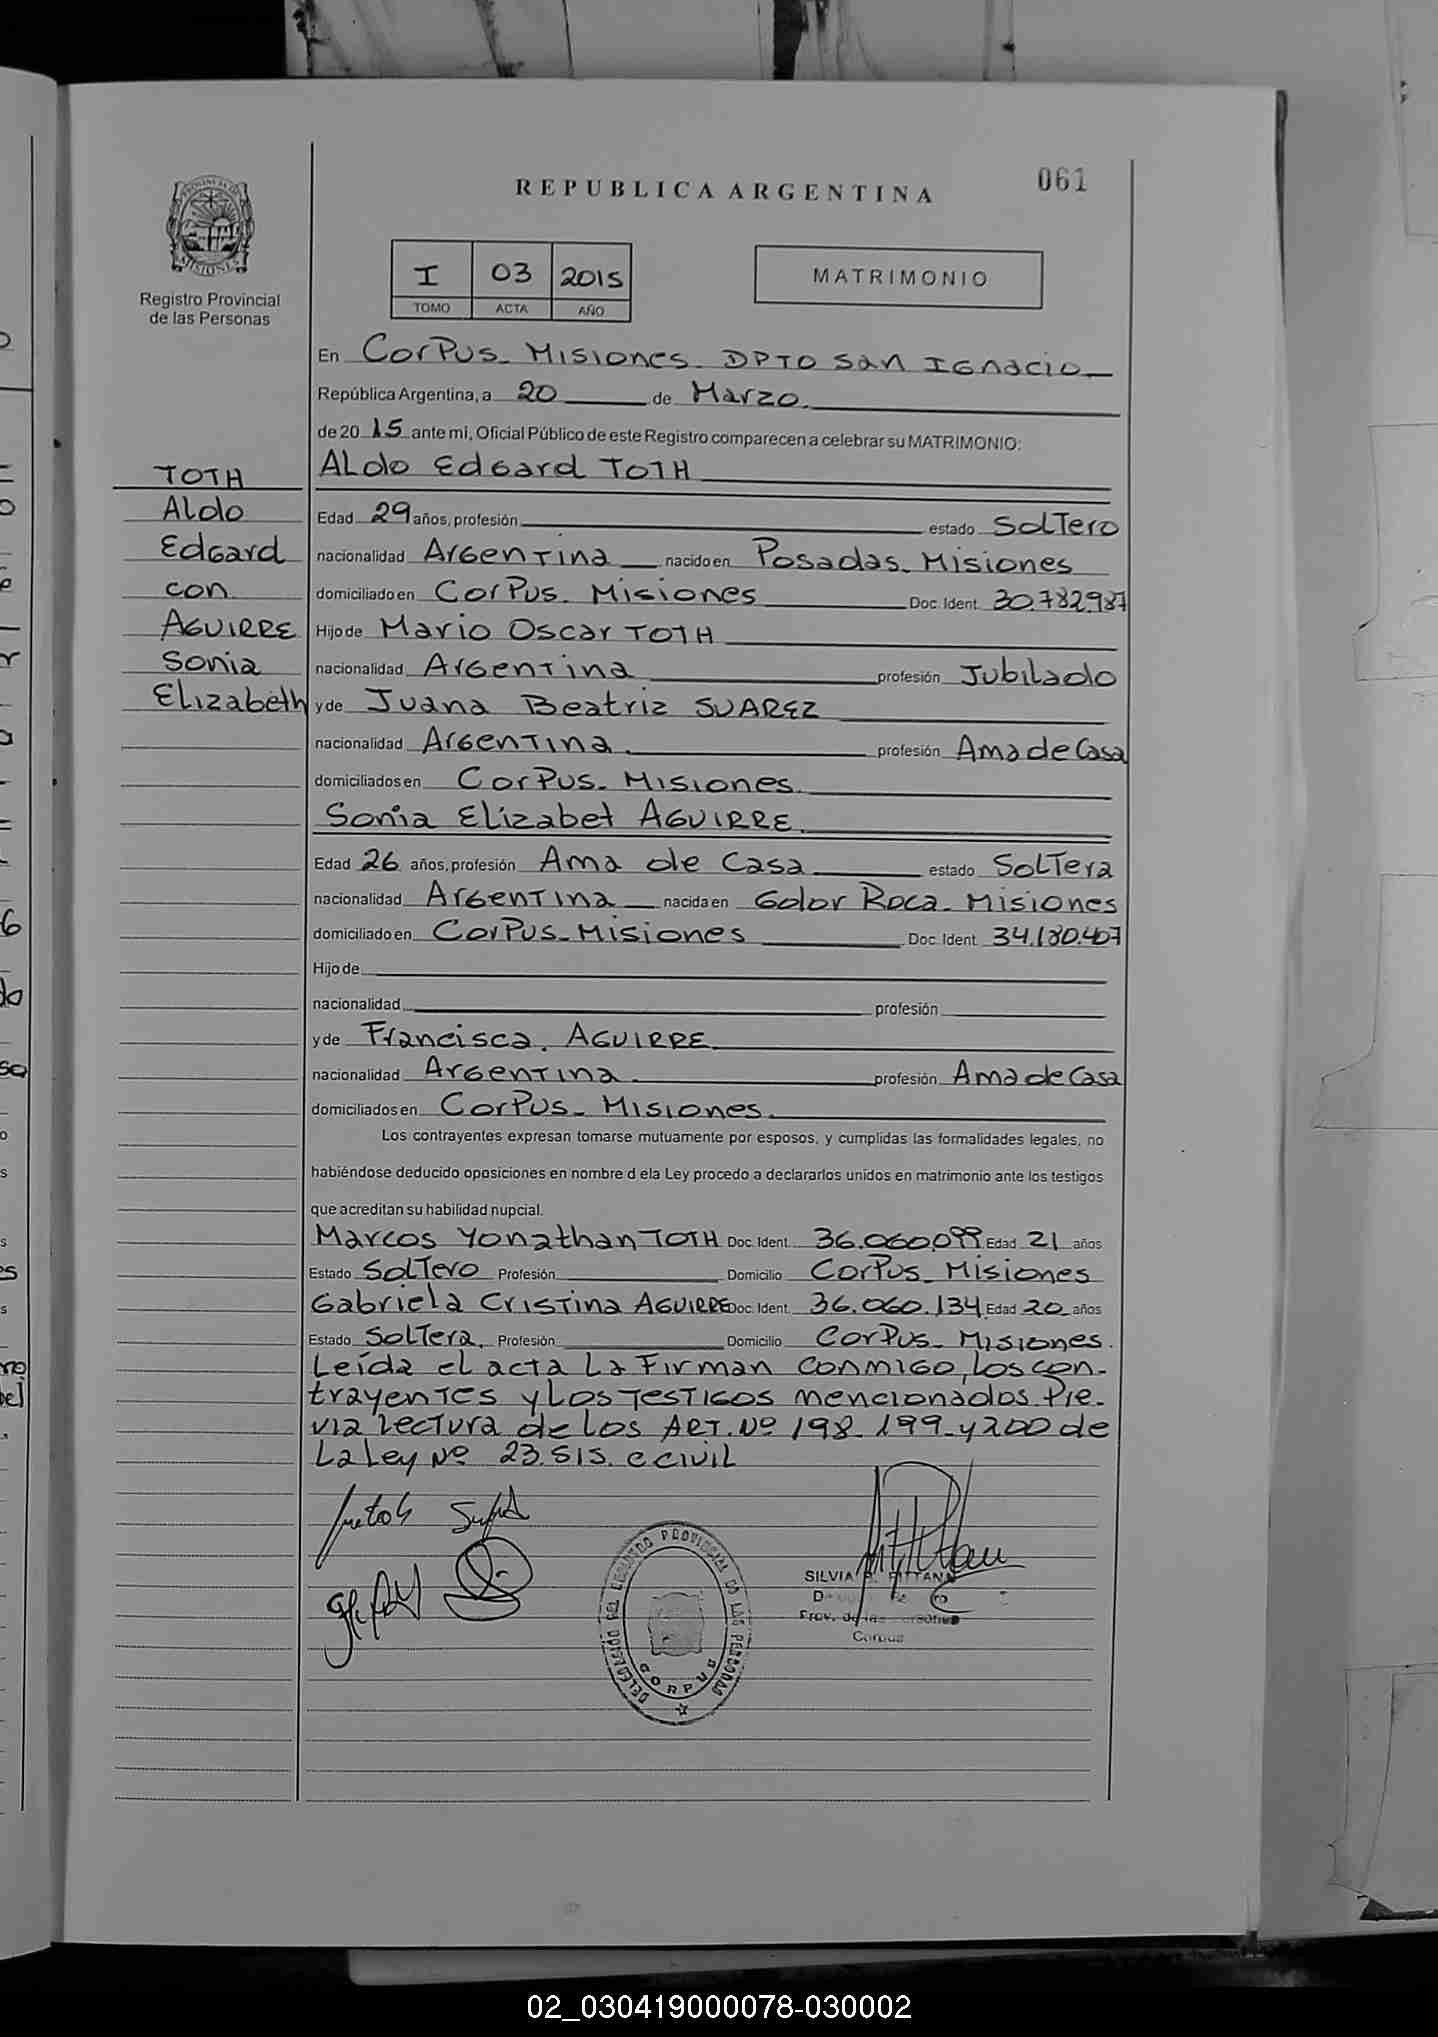 REPUBLICA ARGENTINA
061
PROVINCIA DE
MISIONES
Registro Provincial
de las Personas
I 03 2015
TOMO ACTA AÑO
MATRIMONIO
En Corpus - Misiones - DPTO San Ignacio
República Argentina, a 20 de Marzo.
de 20 15 ante mi, Oficial Público de este Registro comparecen a celebrar su MATRIMONIO:
Aldo Edgard TOTH
TOTH
Aldo
Edgard
con
AGUIRRE
Sonia
Elizabeth
Edad 29 años, profesión estado Soltero
nacionalidad Argentina nacido en Posadas - Misiones
domiciliado en Corpus - Misiones Doc. Ident. 30.782.987
Hijo de Mario Oscar TOTH
nacionalidad Argentina profesión Jubilado
y de Juana Beatriz SUAREZ
nacionalidad Argentina. profesión Ama de Casa
domiciliados en Corpus - Misiones.
Sonia Elizabet AGUIRRE.
Edad 26 años, profesión Ama de Casa estado Soltera
nacionalidad Argentina nacida en Gdor Roca - Misiones
domiciliado en Corpus - Misiones Doc. Ident. 34.180.407
Hijo de
nacionalidad profesión
y de Francisca. AGUIRRE.
nacionalidad Argentina. profesión Ama de Casa
domiciliados en Corpus - Misiones.
Los contrayentes expresan tomarse mutuamente por esposos, y cumplidas las formalidades legales, no
habiéndose deducido oposiciones en nombre d ela Ley procedo a declararlos unidos en matrimonio ante los testigos
que acreditan su habilidad nupcial.
Marcos Yonathan TOTH Doc. Ident. 36.060.099 Edad 21 años
Estado Soltero Profesión Domicilio Corpus - Misiones
Gabriela Cristina AGUIRRE Doc. Ident. 36.060.134 Edad 20 años
Estado Soltera. Profesión Domicilio Corpus - Misiones.
Leída el acta la firman conmigo, los con-
trayentes y los testigos mencionados. Pre-
via lectura de los ART. Nº 198 - 199 - y 200 de
la Ley Nº 23.515. c civil
DELEGACIO DEL REGISTRO PROVINCIAL DE LAS PERSONAS
CORPUS
SILVIA PITTANA
Prov. de las Personas
Corpus
02_030419000078-030002